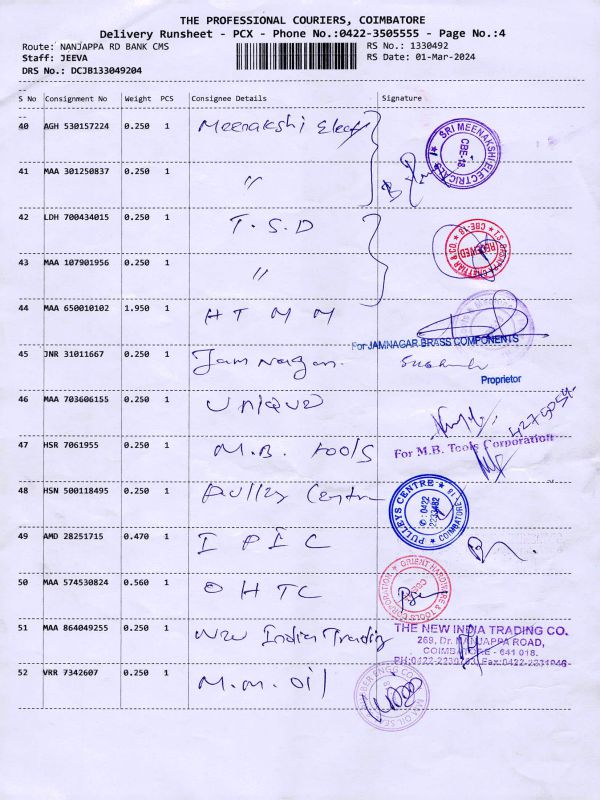 THE PROFESSIONAL COURIERS, COIMBATORE
Delivery Runsheet - PCX - Phone No.:0422-3505555 - Page No.:4
Route: NANJAPPA RD BANK CMS RS No.: 1330492
Staff: JEEVA RS Date: 01-Mar-2024
DRS No.: DCJB133049204
S No Consignment No Weight PCS Consignee Details Signature
40 AGH 530157224 0.250 1 Meenakshi Elect
SRI MEENAKSHI ELECTRICALS
CBE-18
41 MAA 301250837 0.250 1 "
42 LDH 700434015 0.250 1 T.S.D
CBE-18
RECEIVED
43 MAA 107901956 0.250 1 "
44 MAA 650010102 1.950 1 H T M M
For JAMNAGAR BRASS COMPONENTS
45 JNR 31011667 0.250 1 Jam Nagar.
Proprietor
46 MAA 703606155 0.250 1 Unique
47 HSR 7061955 0.250 1 M.B. tools
For M.B. Tools Corporation
48 HSN 500118495 0.250 1 Pulley Centre
PULLEYS CENTRE
COIMBATORE
49 AMD 28251715 0.470 1 I P I C
50 MAA 574530824 0.560 1 O H T C
ORIENT HARDWARE & TOOLS CORPORATION
51 MAA 864049255 0.250 1 New India Trading
THE NEW INDIA TRADING CO.
269, Dr. NANJAPPA ROAD,
COIMBATORE - 641 018.
52 VRR 7342607 0.250 1 M.M. Oil